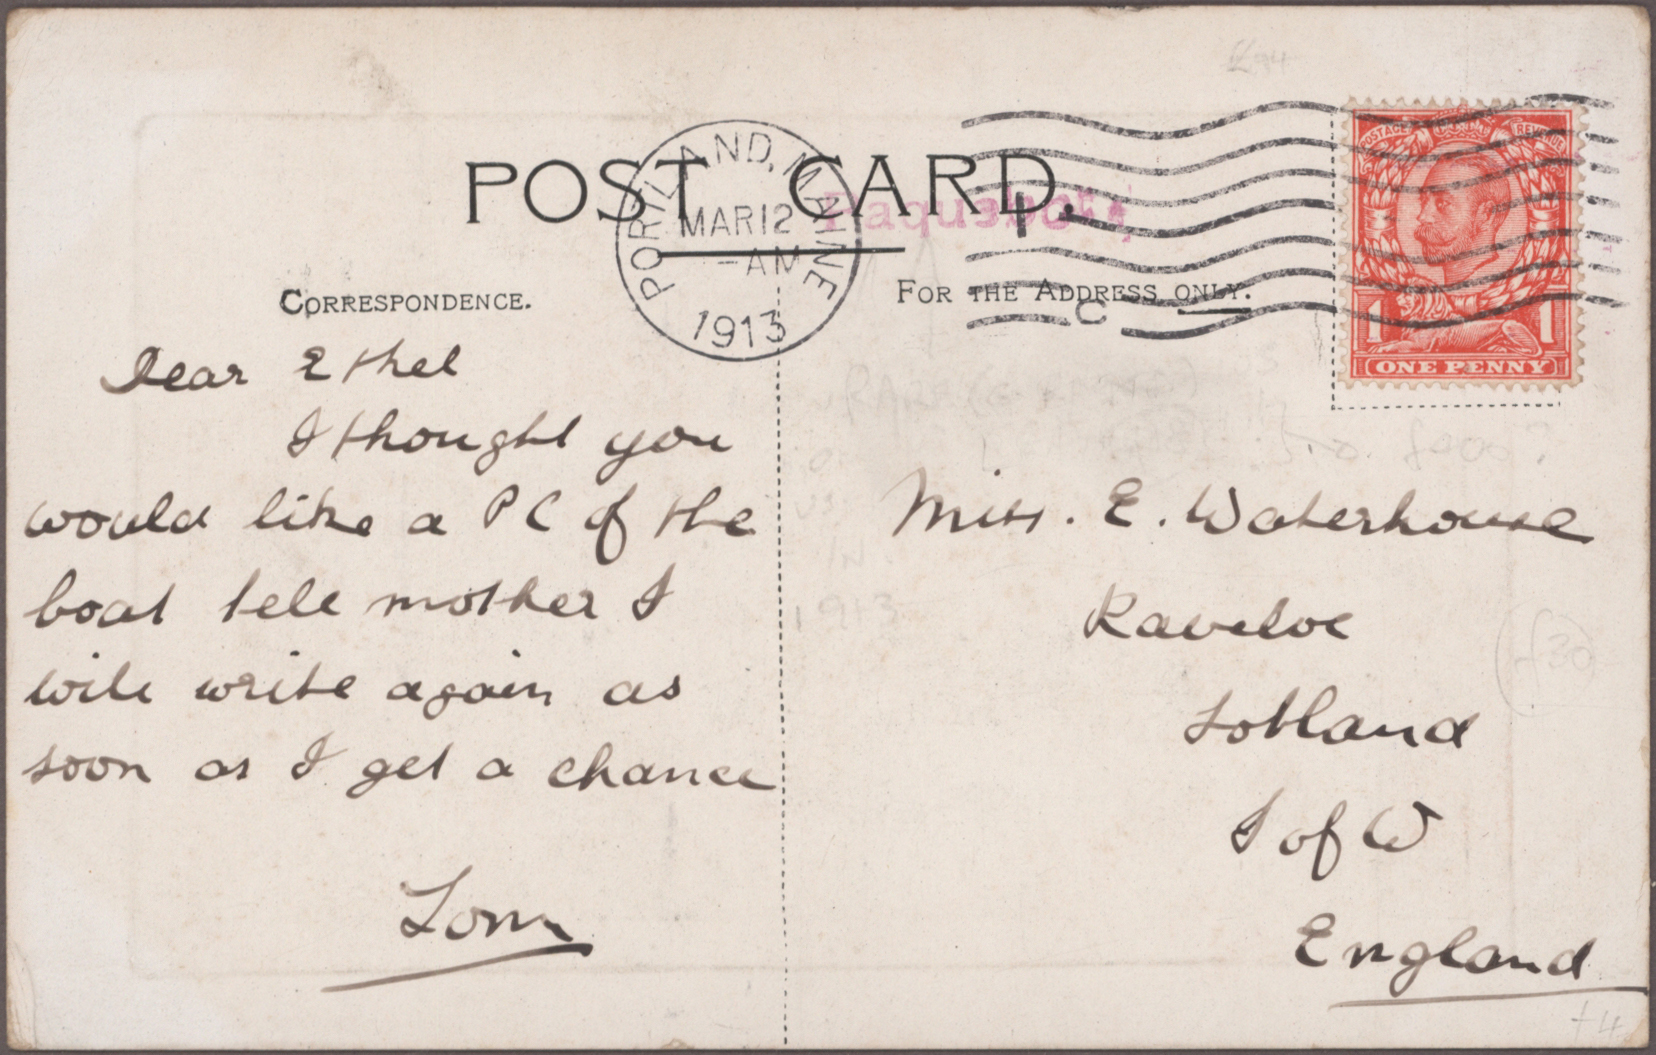 POST CARD.
PORTLAND, MAINE
MAR 12
-AM
1913
Paquebot
C
POSTAGE REVENUE
1 1
ONE PENNY
CORRESPONDENCE.
FOR THE ADDRESS ONLY.
Dear Ethel
I thought you
would like a PC of the
boat tell mother I
will write again as
soon as I get a chance
Tom
Miss. E. Waterhouse
Raveloe
Totland
I of W
England
1913
£30